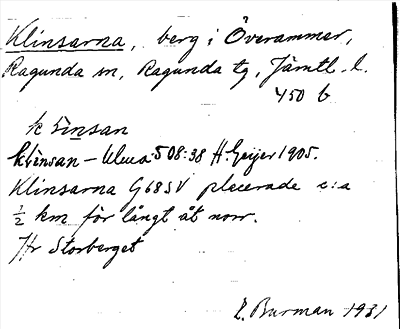 Klinsarna, berg i Överammer,
Ragunda sn, Ragunda tg, Jämtl. l.
450 b
klinsan
klinsan – Ulma 508:38 H. Geijer 1905.
Klinsarna G68SV placerade c:a
½ km för långt åt norr.
Hr Storberget
E. Burman 1931